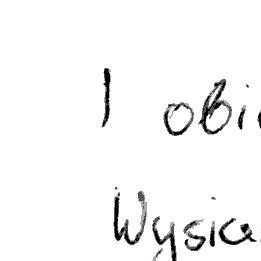 I obi
Wysia